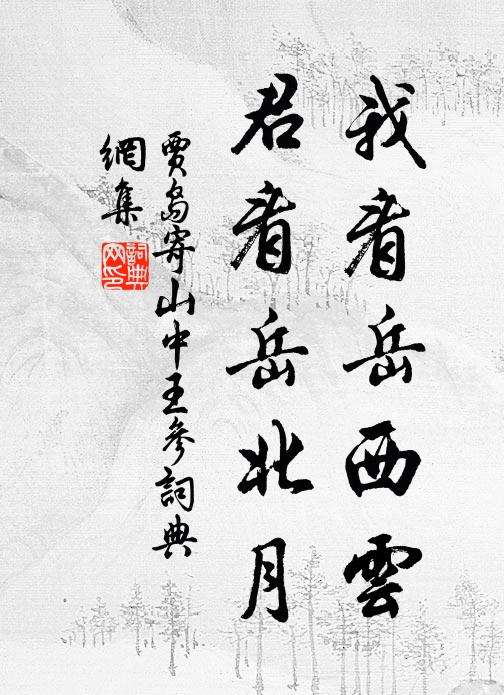 我看岳西雲
君看岳北月
賈島寄山中王參詞典
網集
詞典
网印